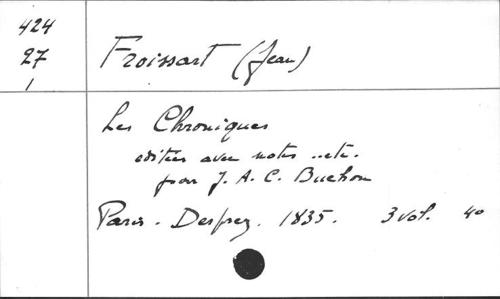 424
27
1
Froissart (Jean)
Les Chroniques
éditées avec notes ..etc.
par J. A. C. Buchon
Paris - Desprez. 1835. 3 vol. 4o